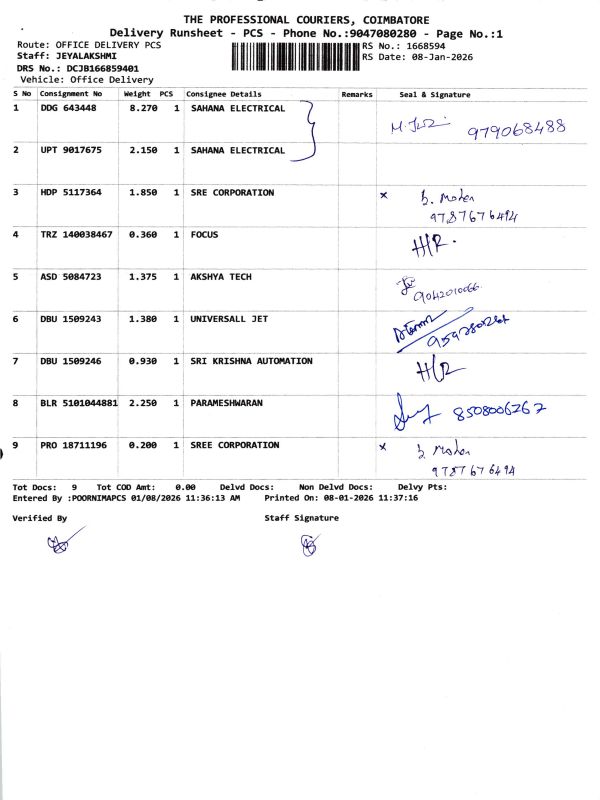 THE PROFESSIONAL COURIERS, COIMBATORE
Delivery Runsheet - PCS - Phone No.:9047080280 - Page No.:1
Route: OFFICE DELIVERY PCS RS No.: 1668594
Staff: JEYALAKSHMI RS Date: 08-Jan-2026
DRS No.: DCJB166859401
Vehicle: Office Delivery
S No Consignment No Weight PCS Consignee Details Remarks Seal & Signature
1 DDG 643448 8.270 1 SAHANA ELECTRICAL
979068488
2 UPT 9017675 2.150 1 SAHANA ELECTRICAL
3 HDP 5117364 1.850 1 SRE CORPORATION x
9787676494
4 TRZ 140038467 0.360 1 FOCUS H/R.
5 ASD 5084723 1.375 1 AKSHYA TECH
9042010066
6 DBU 1509243 1.380 1 UNIVERSALL JET
7 DBU 1509246 0.930 1 SRI KRISHNA AUTOMATION H/R
8 BLR 5101044881 2.250 1 PARAMESHWARAN 8508006262
9 PRO 18711196 0.200 1 SREE CORPORATION x
9787676494
Tot Docs: 9 Tot COD Amt: 0.00 Delvd Docs: Non Delvd Docs: Delvy Pts:
Entered By :POORNIMAPCS 01/08/2026 11:36:13 AM Printed On: 08-01-2026 11:37:16
Verified By Staff Signature